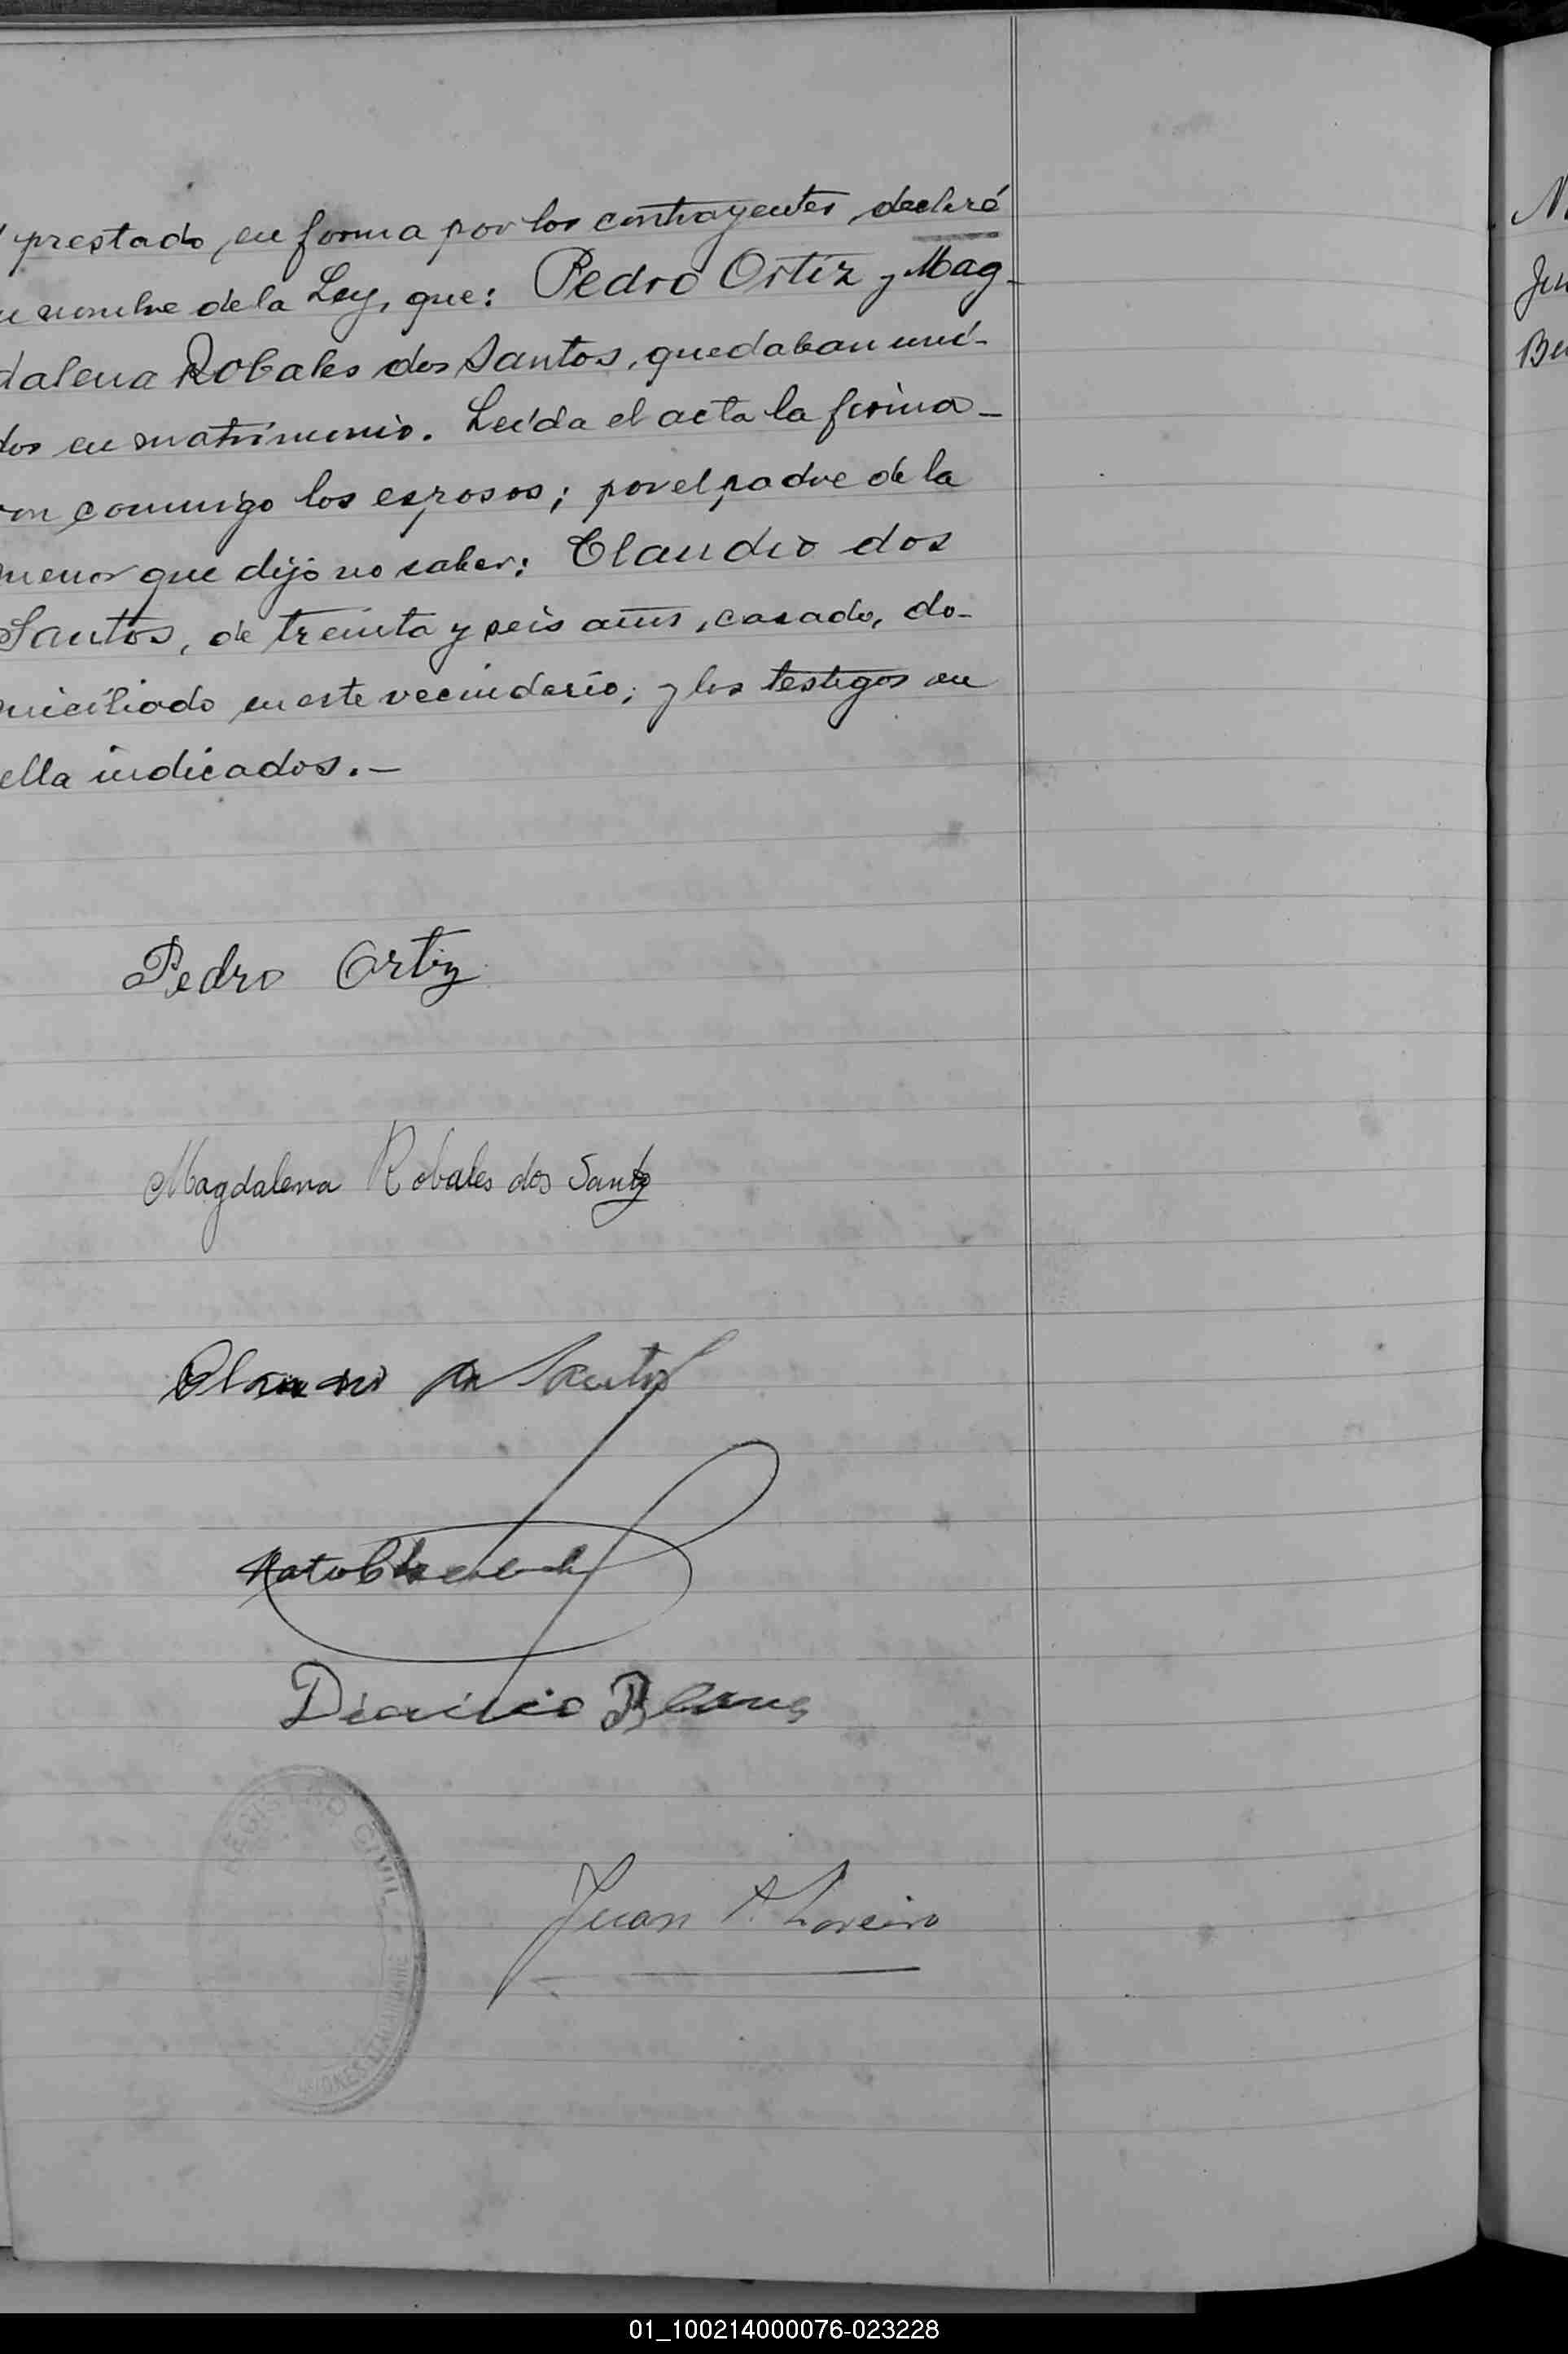 prestado, en forma por los contrayentes, declaré
nombre de la Ley, que: Pedro Ortíz y Mag-
dalena Robales dos Santos, quedaban uni-
dos en matrimonio. Leída el acta la firma-
ron conmigo los esposos; por el padre de la
menor que dijo no saber: Claudio dos
Santos, de treinta y seis años, casado, do-
miciliado en este vecindario; y los testigos en
ella indicados.—
Pedro Ortiz
Magdalena Robales dos Santos
Claudio dos Santos
Juan A. Loreiro
REGISTRO CIVIL
MISIONES
Ju
Be
01_100214000076-023228